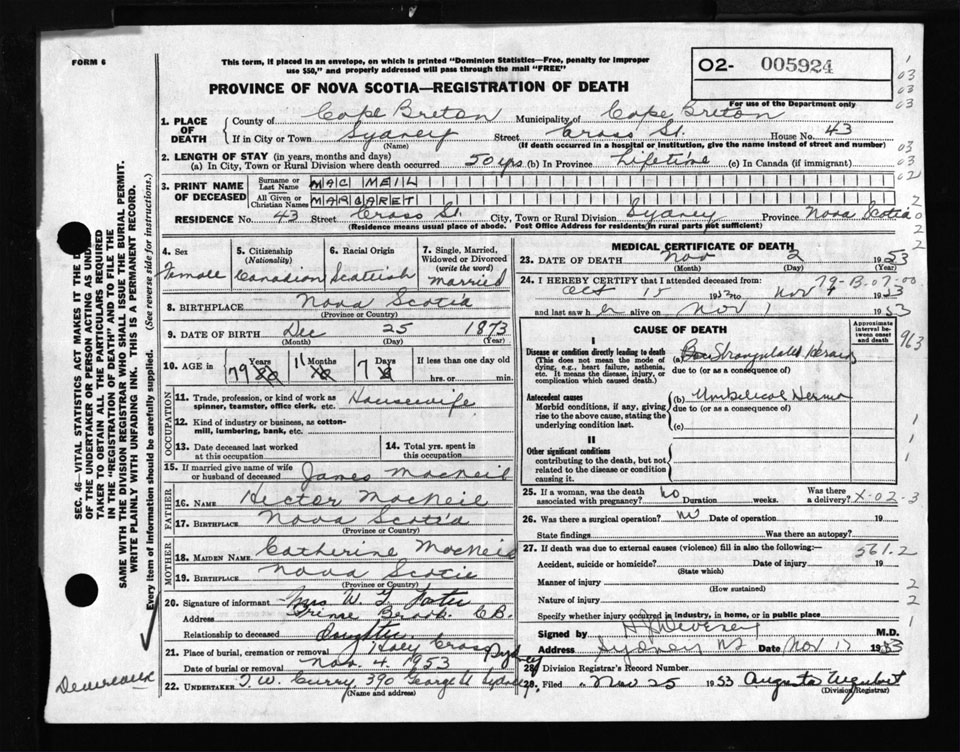 FORM 6
This form, if placed in an envelope, on which is printed "Dominion Statistics—Free, penalty for improper
use $50," and properly addressed will pass through the mail "FREE"
O2- 005924
For use of the Department only
PROVINCE OF NOVA SCOTIA—REGISTRATION OF DEATH
1. PLACE OF DEATH County of Cape Breton Municipality of Cape Breton
If in City or Town Sydney Street Cross St. House No. 43
(Name) (If death occurred in a hospital or institution, give the name instead of street and number)
2. LENGTH OF STAY (in years, months and days)
(a) In City, Town or Rural Division where death occurred 50 yrs (b) In Province Lifetime (c) In Canada (if immigrant)
3. PRINT NAME OF DECEASED
Surname or Last Name MAC NEIL
All Given or Christian Names MARGARET
RESIDENCE No. 43 Street Cross St. City, Town or Rural Division Sydney Province Nova Scotia
(Residence means usual place of abode. Post Office Address for residents in rural parts not sufficient)
4. Sex Female
5. Citizenship (Nationality) Canadian
6. Racial Origin Scottish
7. Single, Married, Widowed or Divorced (write the word) Married
8. BIRTHPLACE Nova Scotia
(Province or Country)
9. DATE OF BIRTH Dec 25 1873
(Month) (Day) (Year)
10. AGE in 79 Years 11 Months 7 Days If less than one day
hrs. or min.
OCCUPATION
11. Trade, profession, or kind of work as spinner, teamster, office clerk, etc. Housewife
12. Kind of industry or business, as cotton-mill, lumbering, bank, etc.
13. Date deceased last worked at this occupation
14. Total yrs. spent in this occupation
15. If married give name of wife or husband of deceased James MacNeil
FATHER
16. NAME Hector MacNeil
17. BIRTHPLACE Nova Scotia
(Province or Country)
MOTHER
18. MAIDEN NAME Catherine MacNeil
19. BIRTHPLACE Nova Scotia
(Province or Country)
20. Signature of informant Mrs W.
Address Brook C.B.
Relationship to deceased Daughter
21. Place of burial, cremation or removal Holy Cross Sydney
Date of burial or removal Nov. 4 1953
22. UNDERTAKER T.W. Curry, 390 George St Sydney
(Name and address)
MEDICAL CERTIFICATE OF DEATH
23. DATE OF DEATH Nov 2 1953
(Month) (Day) (Year)
24. I HEREBY CERTIFY that I attended deceased from
Oct 15 1953 to Nov 1 1953
and last saw her alive on Nov 1 1953
79-B.07-00
CAUSE OF DEATH
Approximate interval between onset and death
I
Disease or condition directly leading to death (a) Strangulated Hernia
(This does not mean the mode of dying, e.g., heart failure, asthenia, etc. It means the disease, injury, or complication which caused death.)
due to (or as a consequence of)
Antecedent causes (b) Umbilical Hernia
Morbid conditions, if any, giving rise to the above cause, stating the underlying condition last.
due to (or as a consequence of)
(c)
II
Other significant conditions
contributing to the death, but not related to the disease or condition causing it.
963
25. If a woman, was the death associated with pregnancy? No Duration weeks. Was there a delivery?
X-02-3
26. Was there a surgical operation? no Date of operation 19
State findings Was there an autopsy?
27. If death was due to external causes (violence) fill in also the following:—
561.2
Accident, suicide or homicide? Date of injury 19
(State which)
Manner of injury
(How sustained)
Nature of injury
Specify whether injury occurred in industry, in home, or in public place
Signed by M.D.
Address Sydney NS Date Nov 17 1953
28. Division Registrar's Record Number
29. Filed Nov 25 1953 Augusta Urquhart
(Division Registrar)
SEC. 46—VITAL STATISTICS ACT MAKES IT THE D
OF THE UNDERTAKER OR PERSON ACTING AS UND
TAKER TO OBTAIN ALL THE PARTICULARS REQUIRED
IN THE "REGISTRATION OF DEATH" AND TO FILE THE
SAME WITH THE DIVISION REGISTRAR WHO SHALL ISSUE THE BURIAL PERMIT.
WRITE PLAINLY WITH UNFADING INK. THIS IS A PERMANENT RECORD.
Every item of information should be carefully supplied. (See reverse side for instructions.)